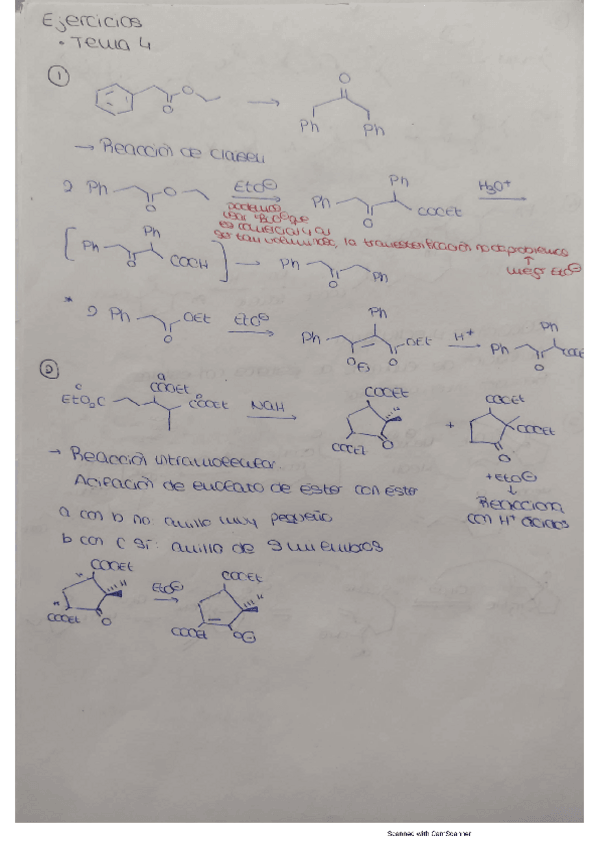 Ejercicios
• Tema 4
①
O
O
O
Ph
Ph
→ Reacción de Claisen
Ph
O
O
EtO⊖
Ph
Ph
O
COOEt
H3O+
podemos
es comercial y al
ser tan voluminoso, la transesterificación no da problemas
↑
mejor EtO⊖
Ph
Ph
O
COOH
Ph
Ph
O
Ph
OEt
O
EtO⊖
Ph
Ph
OEt
O⊖
O
H+
Ph
Ph
O
②
c
EtO2C
a
COOEt
b
COOEt
NaH
COOEt
COOEt
O
+
COOEt
COOEt
O
+ EtO⊖
↓
Reacciona
con H+ ácidos
→ Reacción intramolecular
Acilación de enolato de ester con ester
a con b no anillo muy pequeño
b con c sí: anillo de 5 miembros
COOEt
H
COOEt
O
EtO⊖
COOEt
H
COOEt
O⊖
Scanned with CamScanner